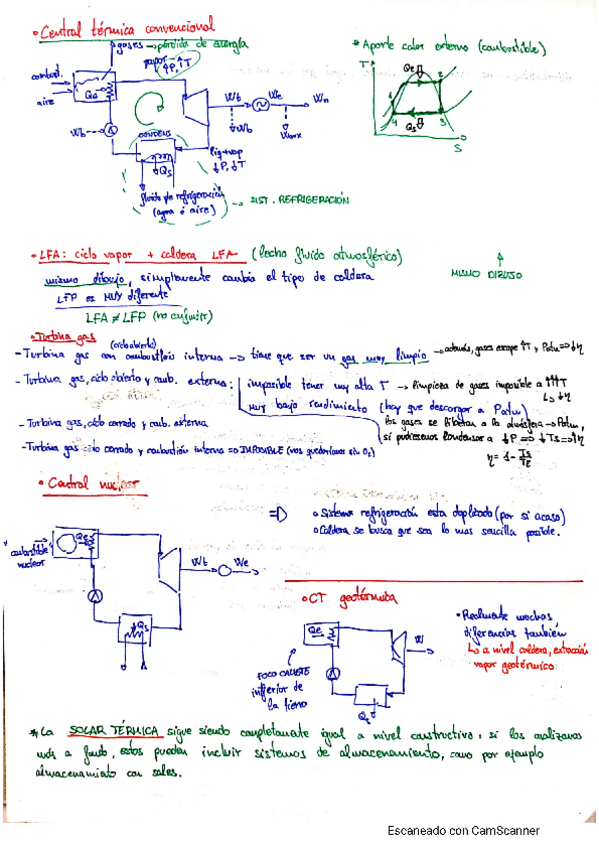 • Central térmica convencional
gases → pérdida de energía
* Aporte calor externo (combustible)
vapor ↑P,↑T
combust.
aire
Qe
Wb
Wt
We
Wn
Wb
Waux
CONDENS
Qs
liq+vap
↓P,↓T
fluido de refrigeración
(agua ó aire)
→ SIST. REFRIGERACIÓN
T
Qe
1
2
3
4
Qs
S
• LFA: ciclo vapor + caldera LFA (lecho fluido atmosférico)
mismo dibujo, simplemente cambia el tipo de caldera
MISMO DIBUJO
LFP es MUY diferente
LFA ≠ LFP (no confundir)
• Turbina gas
(ciclo abierto)
- Turbina gas con combustión interna → tiene que ser un gas muy limpio → además, gases escape ↑T y Patm ⇒ ↓η
- Turbina gas, ciclo abierto y comb. externa: imposible tener muy alta T → limpieza de gases imposible a ↑↑↑T
↳ ↓η
muy bajo rendimiento (hay que descargar a Patm)
los gases se liberan a la atmósfera → Patm,
- Turbina gas, ciclo cerrado y comb. externa
si pudiésemos condensar a ↓P ⇒ ↓Ts ⇒ ↑η
- Turbina gas ciclo cerrado y combustión interna ⇒ IMPOSIBLE (nos quedaríamos sin O2)
η = 1 - Ts/Te
• Central nuclear
⇒ • Sistema refrigeración esta duplicado (por si acaso)
• Caldera se busca que sea lo mas sencilla posible.
Qe
combustible
nuclear
Wt
We
Qs
• CT geotérmica
Qe
W
• Realmente muchas
diferencias también
↳ a nivel caldera, extracción
vapor geotérmico
FOCO CALIENTE
interior de
la tierra
Qs
* La SOLAR TÉRMICA sigue siendo completamente igual a nivel constructivo, si los analizamos
más a fondo, estos pueden incluir sistemas de almacenamiento, como por ejemplo
almacenamiento con sales.
Escaneado con CamScanner